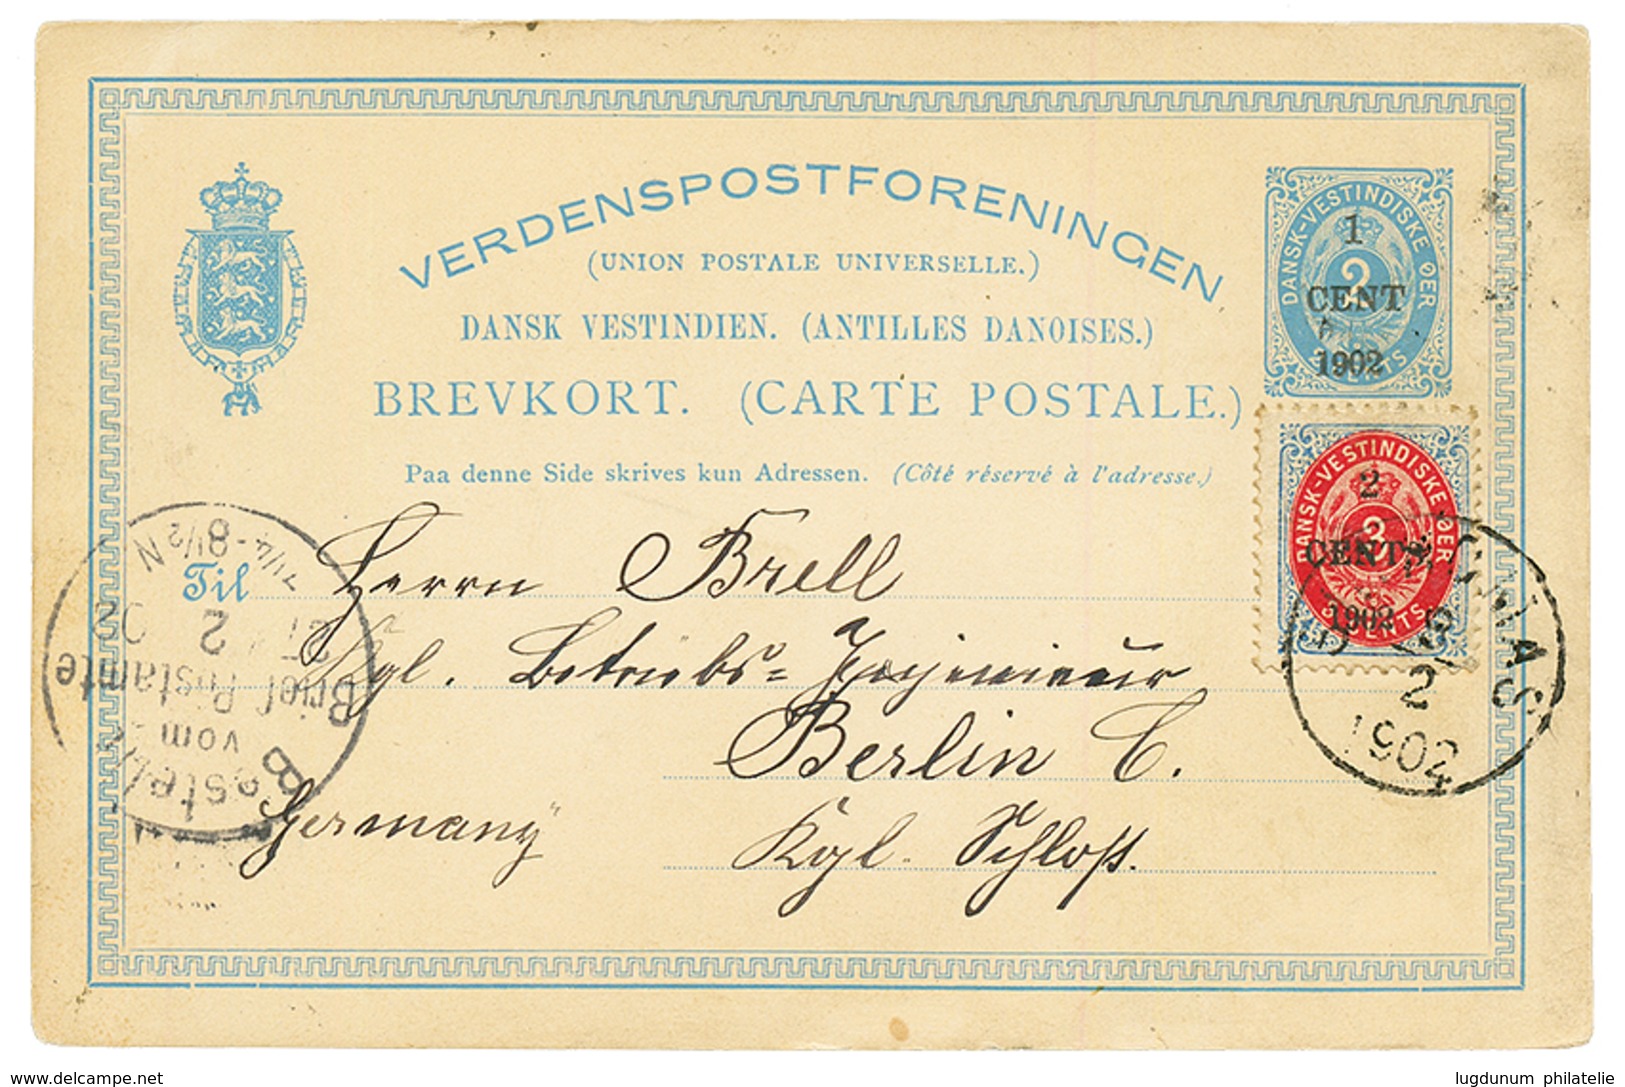 VERDENSPOSTFORENINGEN
(UNION POSTALE UNIVERSELLE.)
DANSK VESTINDIEN. (ANTILLES DANOISES.)
BREVKORT. (CARTE POSTALE.)
Paa denne Side skrives kun Adressen. (Côté réservé à l'adresse.)
DANSK-VESTINDISKE ØER
1
CENT
1902
DANSK-VESTINDISKE ØER
2
3
CENTS
1902
3 CENTS
2
1902
Til Herrn Brell
Kgl. Betriebs= Ingenieur
Berlin C.
Germany Kgl. Schloß.
Bestellt
vom
Brief Postamte
2 02
7¼-8½ N
delcampe.net
lugdunum philatelie